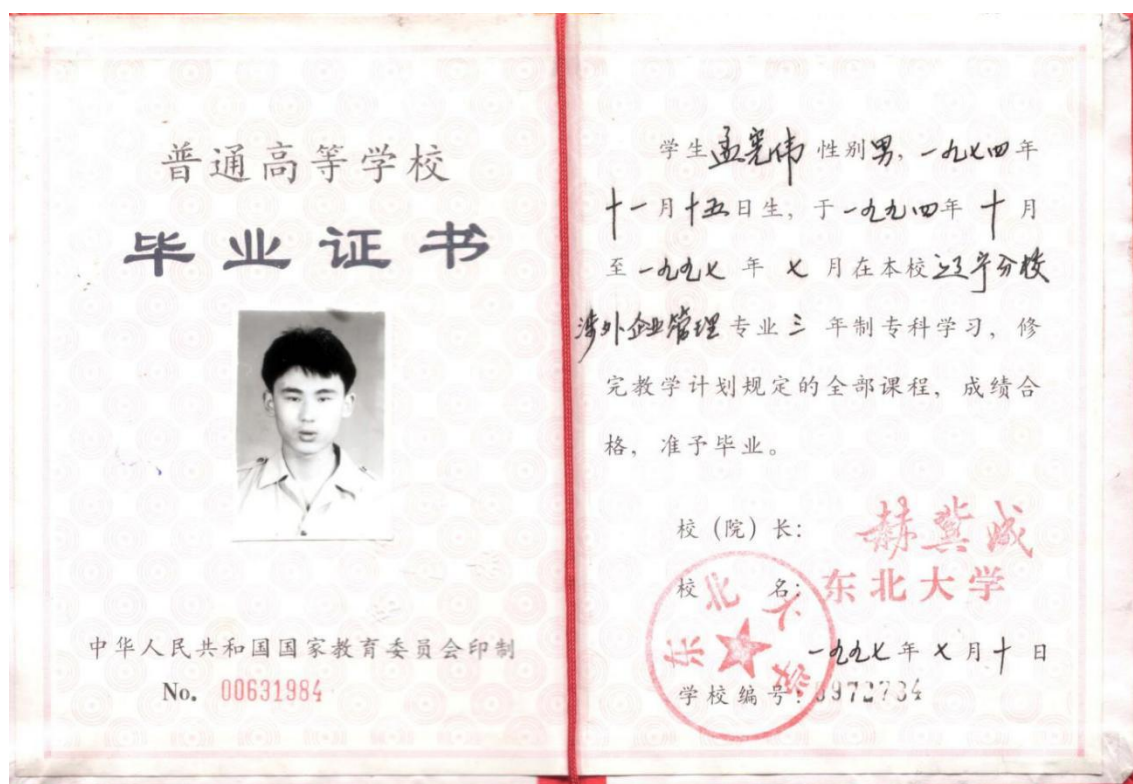 普通高等学校
毕业证书
中华人民共和国国家教育委员会印制
No. 00631984
学生孟宪伟性别男，一九七四年
十一月十五日生，于一九九四年十月
至一九九七年七月在本校辽宁分校
涉外企业管理专业三年制专科学习，修
完教学计划规定的全部课程，成绩合
格，准予毕业。
校（院）长：赫冀成
校名：东北大学
东北大学
一九九七年七月十日
学校编号：